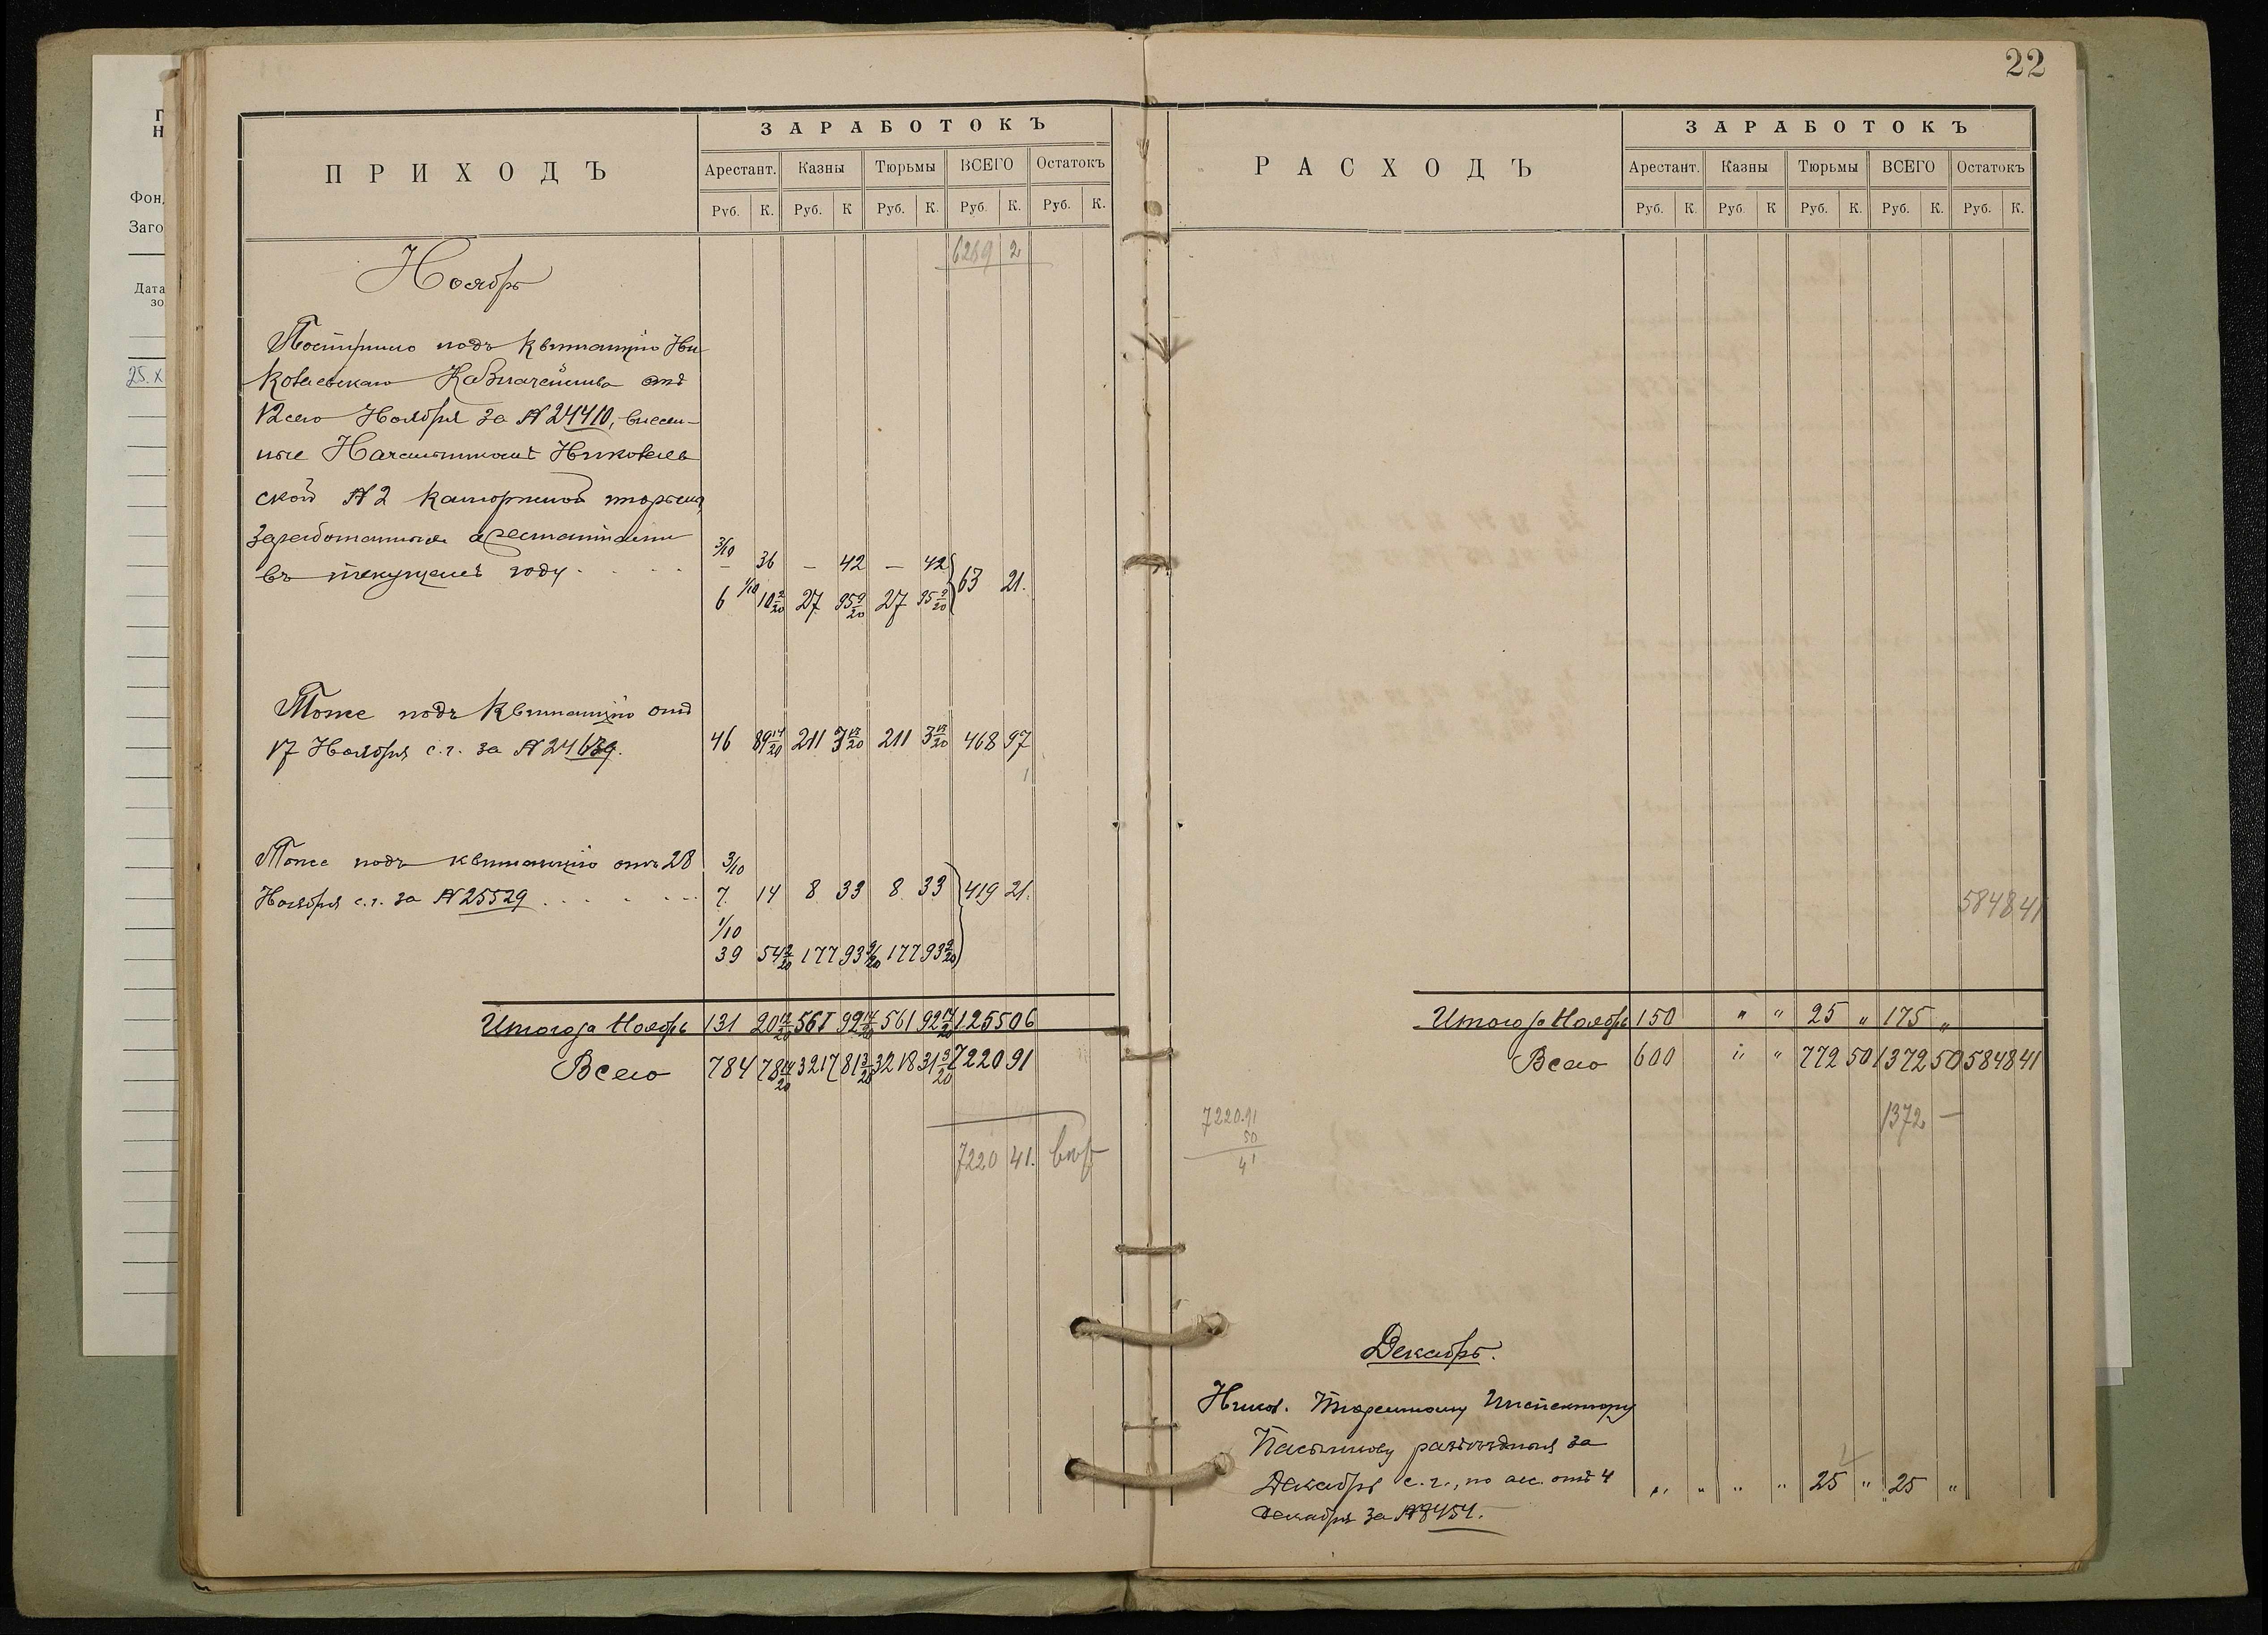 22
Г
Н
Фон
Заго
Дата
зо
25.X
ПРИХОДЪ
ЗАРАБОТОКЪ
Арестант. Казны Тюрьмы ВСЕГО Остатокъ
Руб. К. Руб. К Руб. К. Руб. К. Руб. К.
6269 2
Ноябрь
Поступило подъ квитанцію Ни
колаевскаго Казначейства отъ
12сего Ноября за № 24410, внесен-
ные Начальникомъ Николаев
ской № 2 каторжной тюрьмы,
заработанные арестантами 3/10
въ текущемъ году . . . . — 36 — 42 — 42
6 1/10 10 2/20 27 95 9/20 27 95 9/20 63 21.
Тоже подъ квитанцію отъ
17 Ноября с.г. за № 24639. 46 89 14/20 211 3 13/20 211 3 13/20 468 97
Тоже подъ квитанцію отъ 28 3/10
Ноября с.г. за № 25529 . . . . . 7 14 8 33 8 33 419 21.
1/10
39 54 2/20 177 93 9/20 177 93 9/20
Итого за Ноябрь 131 20 12/20 561 92 14/20 561 92 14/20 1255 06
Всего 784 78 14/20 3217 81 3/20 3218 31 3/20 7220 91
7220 41.
РАСХОДЪ
ЗАРАБОТОКЪ
Арестант. Казны Тюрьмы ВСЕГО Остатокъ
Руб. К. Руб. К Руб. К. Руб. К. Руб. К.
5848 41
Итого за Ноябрь 150 " " 25 " 175 "
Всего 600 " " 772 50 1372 50 5848 41
1372 —
7220.91
50
41
Декабрь.
Никол. Тюремному Инспектору
разъѣздныя за
Декабрь с.г., по асс. отъ 4 " " " " 25 " 25 "
Декабря за № 7454.